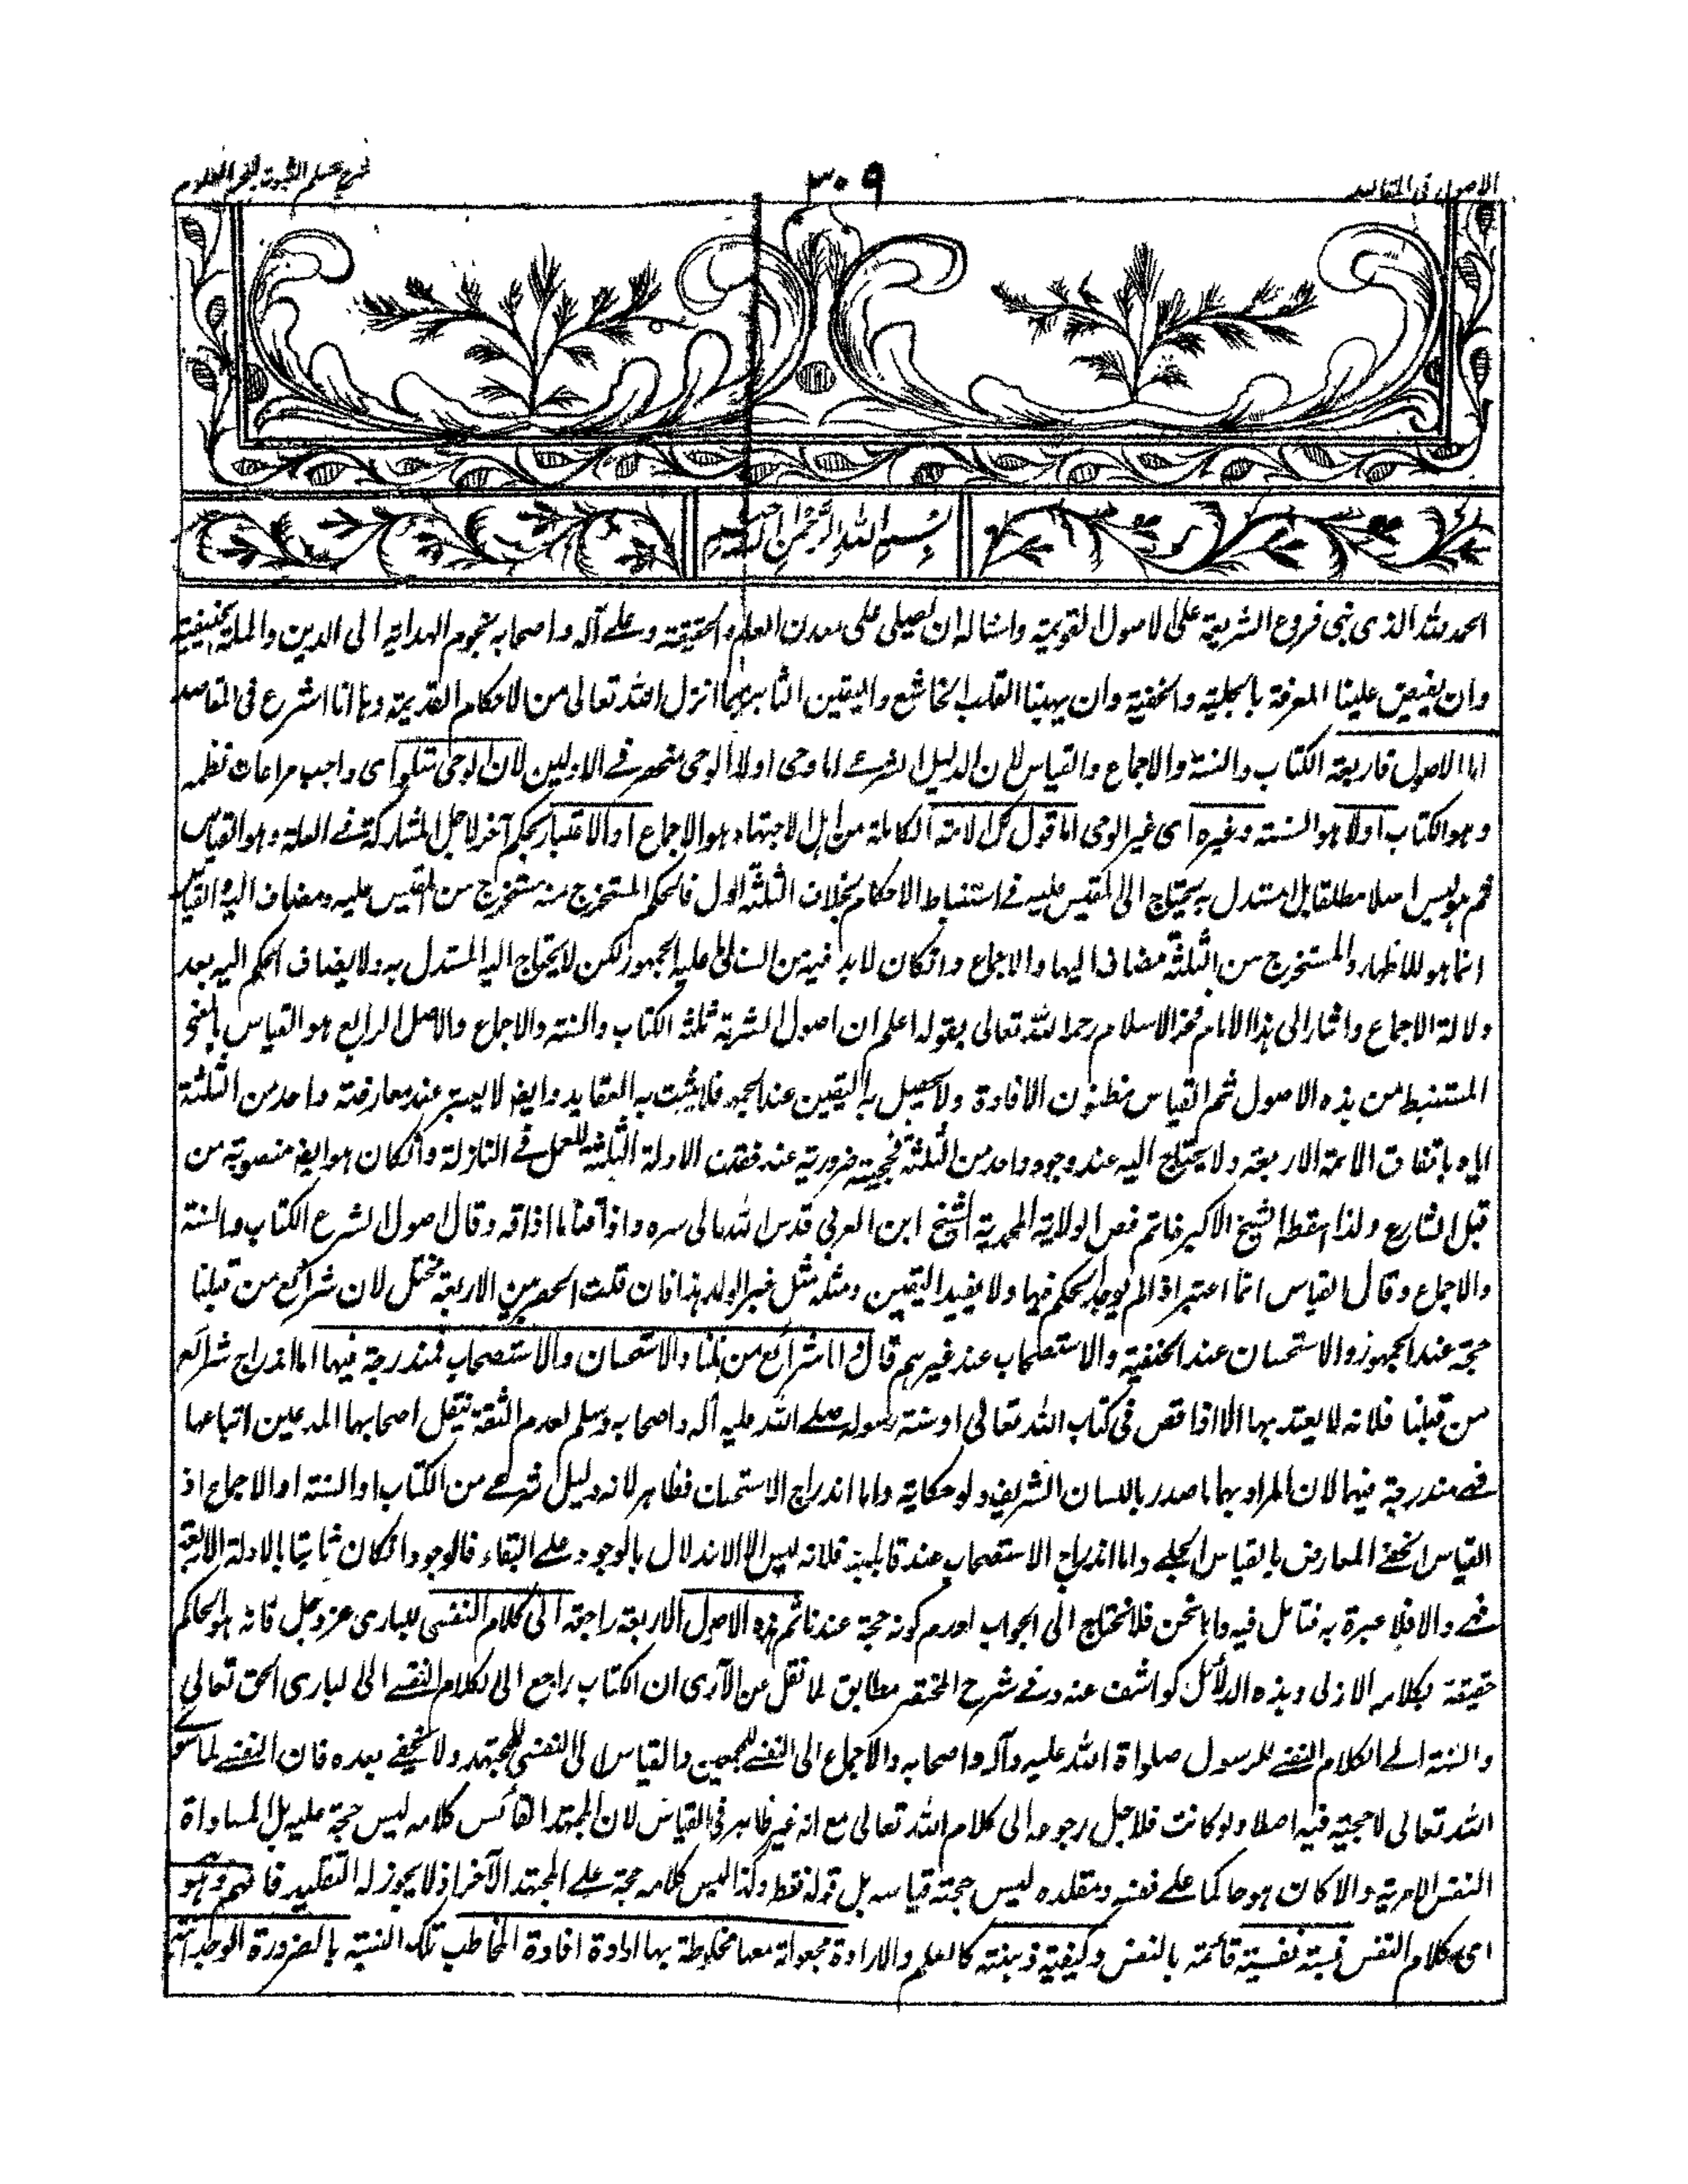 الاصول فى المقاصد
٣٠٩
شرح مسلم الثبوت لبحر العلوم
بسم الله الرحمن الرحيم
الحمد لله الذى بنى فروع الشريعة على الاصول القويمة واسئاله ان يصلى على معدن العلم والحقيقة وعلى آله واصحابه نجوم الهداية الى الدين والملة الحنيفية
وان يفيض علينا المعرفة بالجلية والخفية وان يهبنا القلب الخاشع واليقين الثابت بما انزل الله تعالى من الاحكام القديمة وها انا اشرع فى المقاصد
اما الاصول فاربعة الكتاب والسنة والاجماع والقياس لان الدليل الشرعى اما وحى اولا والوحى منحصر فى الاولين لان الوحى متلو اى واجب مراعات نظمه
وهو الكتاب اولا وهو السنة وغيره اى غير الوحى اما قول كل الامة الكاملة من اهل الاجتهاد وهو الاجماع او الاعتبار بحكم آخر لاجل المشاركة فى العلة وهو القياس
ثم هو ليس اصلا مطلقا بل المستدل به يحتاج الى المقيس عليه فى استنباط الاحكام بخلاف الثلثة الاول فالحكم المستخرج منه مستخرج من المقيس عليه ومضاف اليه والقياس
انما هو للاظهار والمستخرج من الثلثة مضاف اليها والاجماع وانكان لابد فيه من السند على ما عليه الجمهور لكن لا يحتاج اليه المستدل به ولا يضاف الحكم اليه بعد
دلالة الاجماع واشار الى هذا الامام فخر الاسلام رحمه الله تعالى بقوله اعلم ان اصول الشرع ثلثة الكتاب والسنة والاجماع والاصل الرابع هو القياس بالمعنى
المستنبط من هذه الاصول ثم القياس مظنون الافادة ولا يحصل به اليقين عند الجمهور فلا يثبت به العقايد وايضا لا يعتبر عند معارضة واحد من الثلثة
اياه باتفاق الائمة الاربعة ولا يحتاج اليه عند وجود واحد من الثلثة فحجيته ضرورية عند فقدن الادلة الثلثة للعمل فى النازلة وانكان هو ايضا منصوبة من
قبل الشارع ولذا اسقط الشيخ الاكبر خاتم فص الولاية المحمدية الشيخ ابن العربى قدس الله تعالى سره واذاقنا ما اذاقه وقال اصول الشرع الكتاب والسنة
والاجماع وقال القياس انما اعتبر اذ الم يوجد الحكم فيها ولا يفيد اليقين ومثله مثل خبر الواحد هذا فان قلت الحصر بين الاربعة مختل لان شرائع من قبلنا
حجة عند الجمهور والاستحسان عند الحنفية والاستصحاب عند غيرهم قال واما شرائع من قبلنا والاستحسان والاستصحاب فمندرجة فيها اما اندراج شرائع
من قبلنا فلانه لا يعتد بها الا اذا قص فى كتاب الله تعالى او سنة رسوله صلى الله عليه آله واصحابه وسلم لعدم الثقة بنقل اصحابها المدعين اتباعها
فهى مندرجة فيهما لان المراد بهما ما صدر باللسان الشريف ولو حكاية واما اندراج الاستحسان فظاهر لانه دليل شرعى من الكتاب او السنة او الاجماع اذ
القياس الخفى المعارض بالقياس الجلى واما اندراج الاستصحاب عند قابليه فلانه ليس الا الاستدلال بالوجود على البقاء فالوجود انكان ثابتا بالادلة الاربعة
فهى والا فلا عبرة به فتامل فيه واما نحن فلا نحتاج الى الجواب لعدم كونه حجة عندنا ثم هذه الاصول الاربعة راجعة الى الكلام النفسى للبارى عز وجل فانه هو الحاكم
حقيقة بكلامه الازلى وهذه الدلائل كواشف عنه وفى شرح المختصر مطابق لما نقل عن الآمدى ان الكتاب راجع الى الكلام النفسى الى البارى الحق تعالى
والسنة الى الكلام النفسى للرسول صلواة الله عليه وآله واصحابه والاجماع الى النفسى للمجمعين والقياس الى النفسى للمجتهد ولا يخفى بعده فان النفسى لما سوى
الله تعالى لا حجية فيه اصلا ولو كانت فلاجل رجوعه الى كلام الله تعالى مع انه غير ظاهر فى القياس لان المجتهد القائس كلامه ليس حجة عليه بل المساواة
النفس الامرية والا كان هو حاكما على نفسه ومقلده ليس حجته قياسه بل قوله فقط وكذا ليس كلامه حجة على المجتهد الآخر اذ لا يجوز له التقليد فافهم وهو
اى كلام النفس نسبة نفسية قائمة بالنفس وكيفية ذهنية كالعلم والارادة مجعولة معها مخلوطة بها ارادة افادة المخاطب تلك النسبة بالضرورة الوجدانية